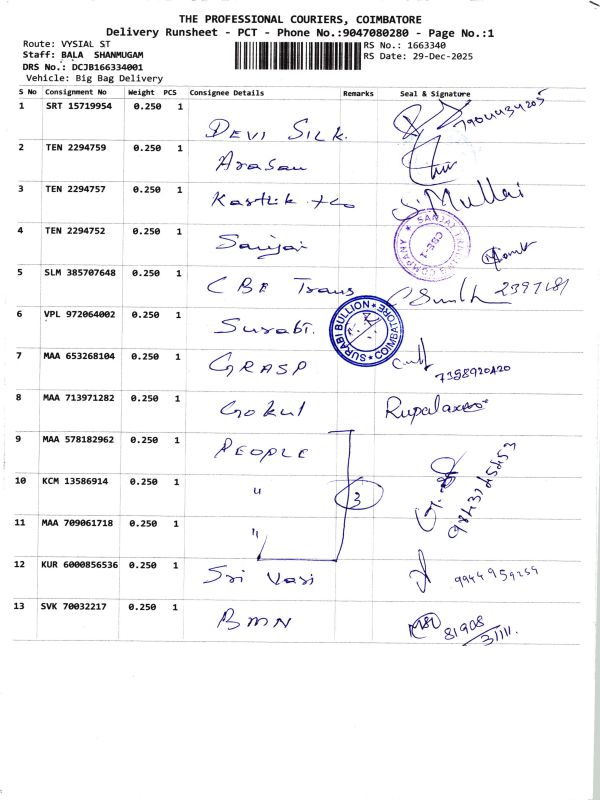 THE PROFESSIONAL COURIERS, COIMBATORE
Delivery Runsheet - PCT - Phone No.:9047080280 - Page No.:1
Route: VYSIAL ST
RS No.: 1663340
Staff: BALA SHANMUGAM
RS Date: 29-Dec-2025
DRS No.: DCJB166334001
Vehicle: Big Bag Delivery
S No Consignment No Weight PCS Consignee Details Remarks Seal & Signature
1 SRT 15719954 0.250 1 DEVI SILK.
2 TEN 2294759 0.250 1 Arasan
3 TEN 2294757 0.250 1 Karthik S.Mullai
4 TEN 2294752 0.250 1 Sanjai
SANJAI TRADING COMPANY
CBE-1
5 SLM 385707648 0.250 1 CBE Trans
6 VPL 972064002 0.250 1 Surabi.
SURABI BULLION COIMBATORE
7 MAA 653268104 0.250 1 GRASP 7358920420
8 MAA 713971282 0.250 1 Gokul
9 MAA 578182962 0.250 1 PEOPLE
10 KCM 13586914 0.250 1 " 3
11 MAA 709061718 0.250 1 "
12 KUR 6000856536 0.250 1 Sri Vasi 9944959259
13 SVK 70032217 0.250 1 BMN 81908
31111.